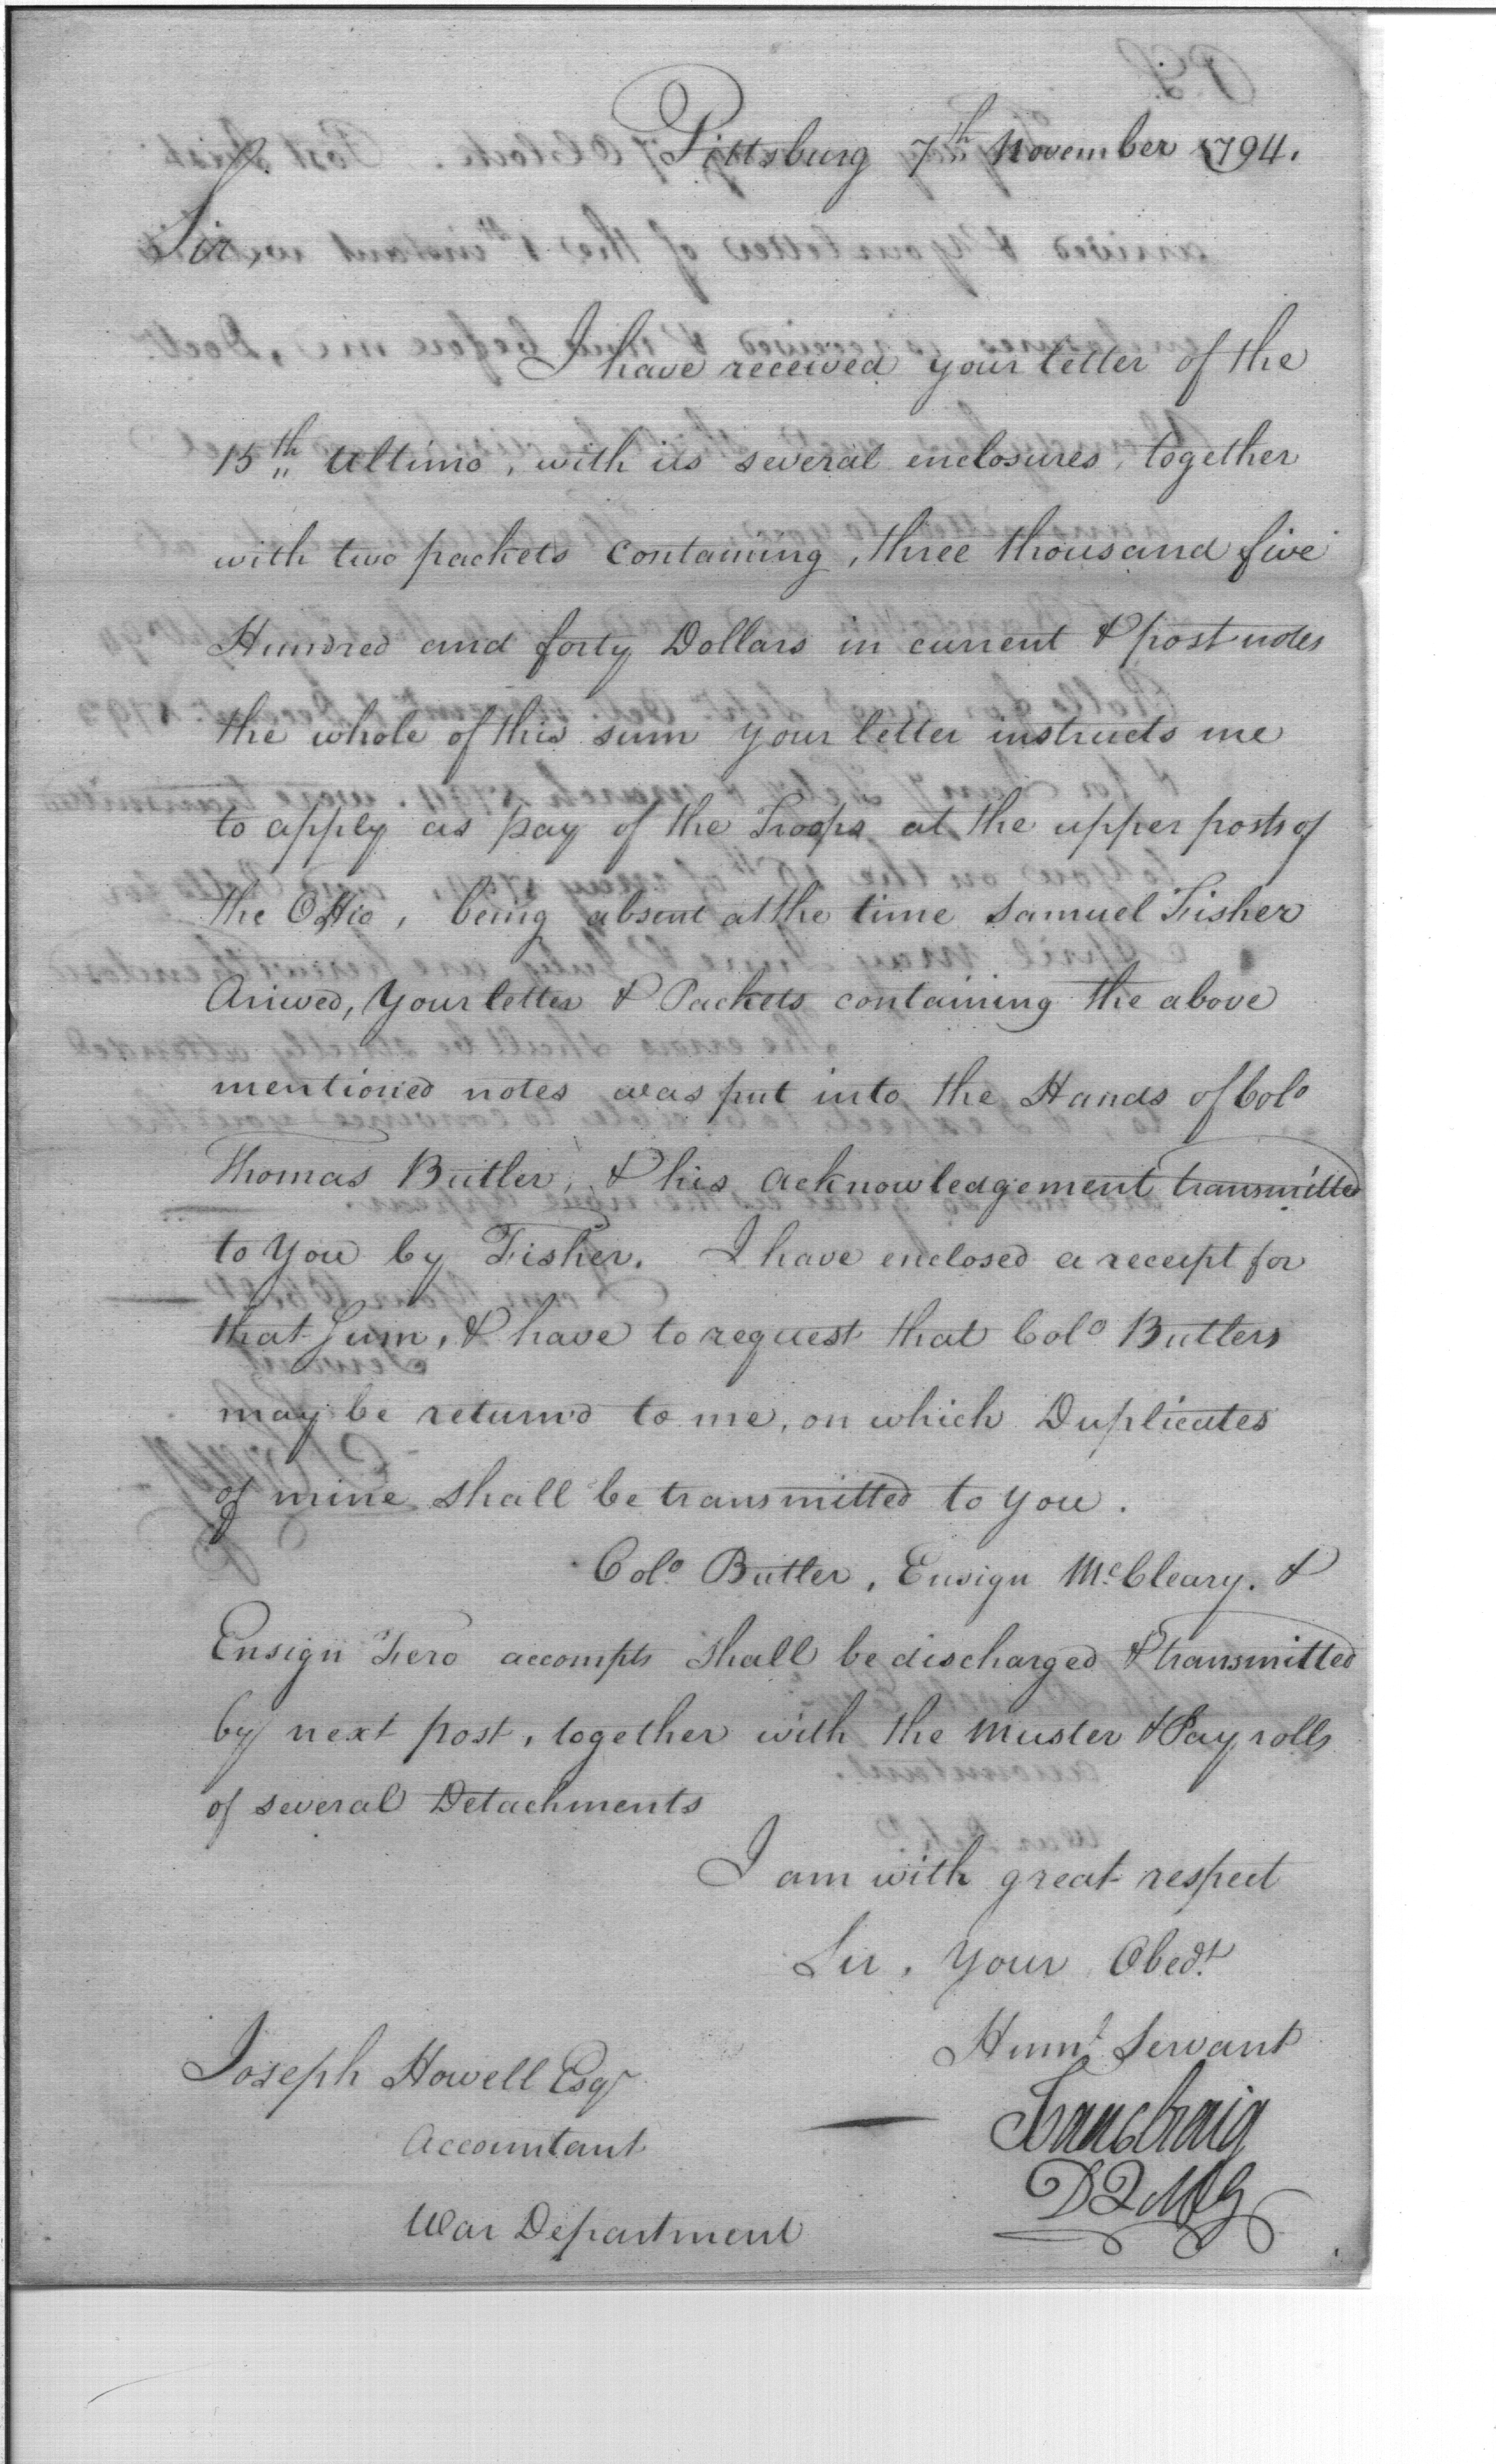 Pittsburg 7th November 1794.
Sir,
I have received your letter of the
15th Ultimo, with its several enclosures, together
with two packets containing, three thousand five
Hundred and forty Dollars in current & post notes
the whole of this sum your letter instructs me
to apply as pay of the Troops at the upper posts of
the Ohio, being absent at the time Samuel Fisher
Arived, your letter & Packets containing the above
mentioned notes was put into the Hands of Colo
Thomas Butler, & his acknowledgement transmitted
to you by Fisher. I have enclosed a receipt for
that Sum, & have to request that Colo Butlers
may be return'd to me, on which Duplicates
of mine shall be transmitted to you.
Colo. Butler, Ensign McCleary. &
Ensign Fero accompts shall be discharged & transmitted
by next post, together with the Muster & Pay rolls
of several Detachments
I am with great respect
Sir, your Obedt.
Humt. Servant
Joseph Howell Esqr
Isaac Craig
Accountant
DQMG
War Department